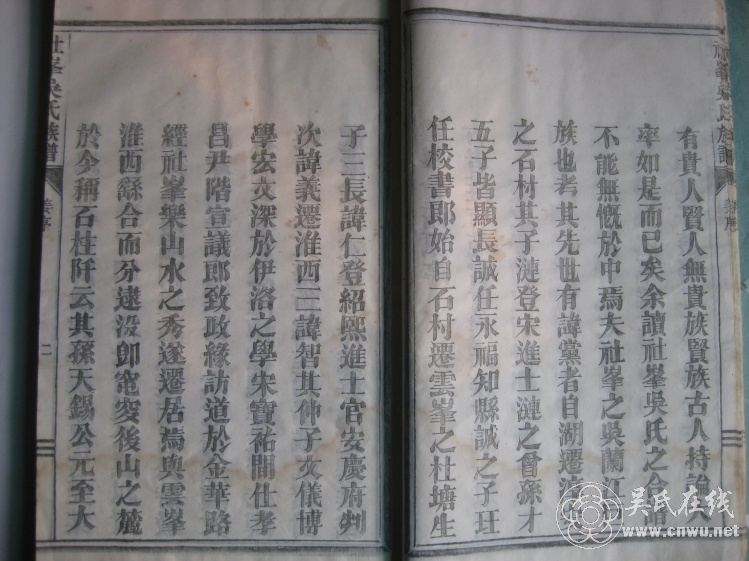 社峯吳氏族譜
有貴人賢人無貴族賢族古人持論
率如是而已矣余讀社峯吳氏之合譜
不能無慨於中焉夫社峯之吳蘭江
族也考其先世有諱黨者自湖遷
之石村其子漣登宋進士漣之曾孫才
五子皆顯長誠任永福知縣誠之子玨
任校書郎始自石村遷雲峯之杜塘生
子三長諱仁登紹熙進士官安慶府判
次諱義遷淮西三諱智其仲子文儀博
學宏文深於伊洛之學宋寶祐間仕孝
昌尹階宣議郎致政緣訪道於金華路
經社峯樂山水之秀遂遷居焉與雲峯
淮西繇合而分逮没卽窀穸後山之麓
於今稱石柱阡云其孫天錫公元至大
社峯吳氏族譜
姜序
二
吴氏在线
www.cnwu.net